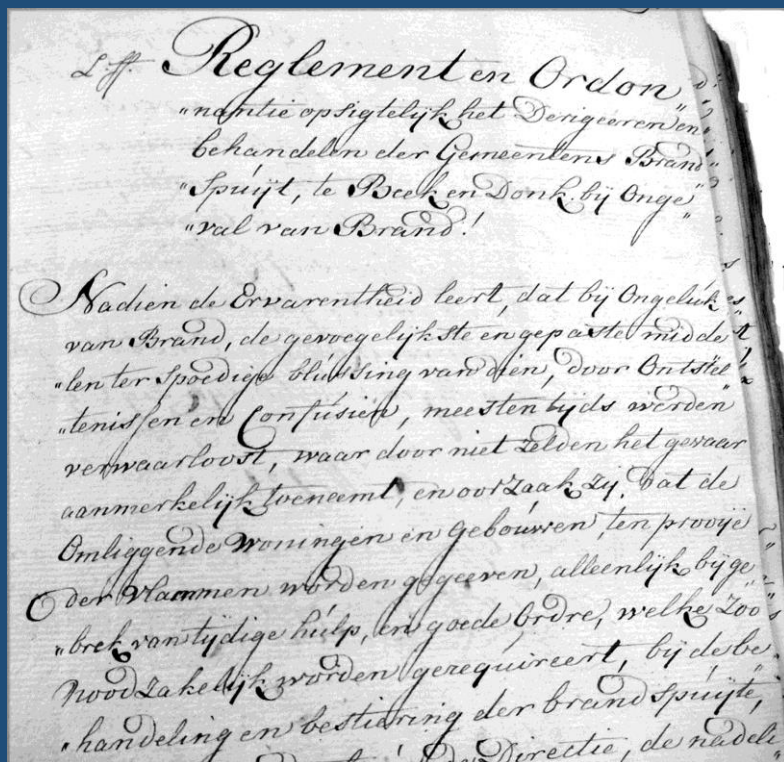 L. ff. Reglement en Ordon„
„nantie opsigtelijk het Derigeeren en
behandelen der Gemeentens Brand„
„Spúijt, te Beek en Donk bij Onge„
„val van Brand!
Nadien de Ervarentheid leert, dat bij Ongelúk
van Brand, de gevoegelijkste en gepaste midde„
„len ter spoedige blússing van dien, door Ontstel„
„tenissen en Confúsien, meesten tijds werden
verwaarloost, waar door niet zelden het gevaar
aanmerkelijk toeneemt, en oorzaak zij, dat de
Omliggende Woningen en Gebouwen, ten prooije
der Vlammen worden gegeeven, alleenlijk bij ge„
„brek van tijdige húlp, en goede Ordre, welke Zoo
Noodzakelijk worden gerequireert, bij de be„
„handeling en bestiering der brand spúijte,
Directie, de nadeli